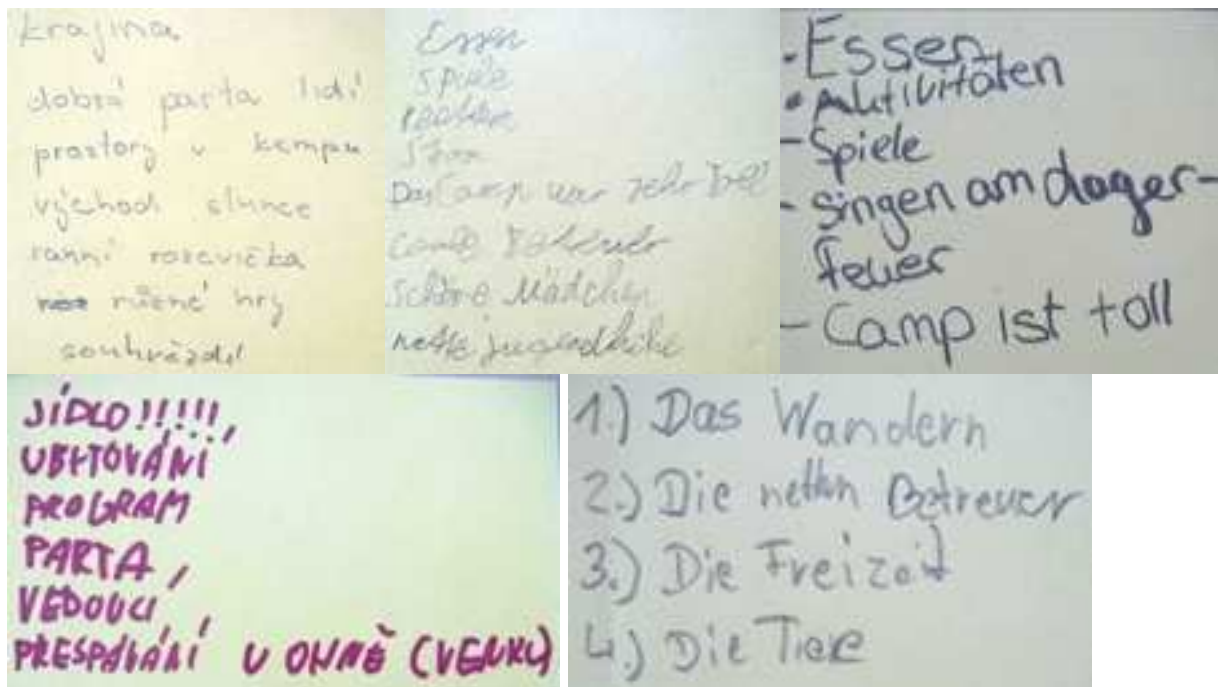 krajina
dobrá parta lidí
prostory v kempu
východ slunce
ranní rozcvička
různé hry
souhvězdí
Essen
Spiele
Das Camp war sehr toll
Camp
schöne Mädchen
nette
- Essen
- Aktivitäten
- Spiele
- singen am Lager-
feuer
- Camp ist toll
JÍDLO!!!!!,
UBYTOVÁNÍ
PROGRAM
PARTA,
VEDOUCÍ,
PŘESPÁVÁNÍ U OHNĚ (VENKU)
1.) Das Wandern
2.) Die netten Betreuer
3.) Die Freizeit
4.) Die Tiere